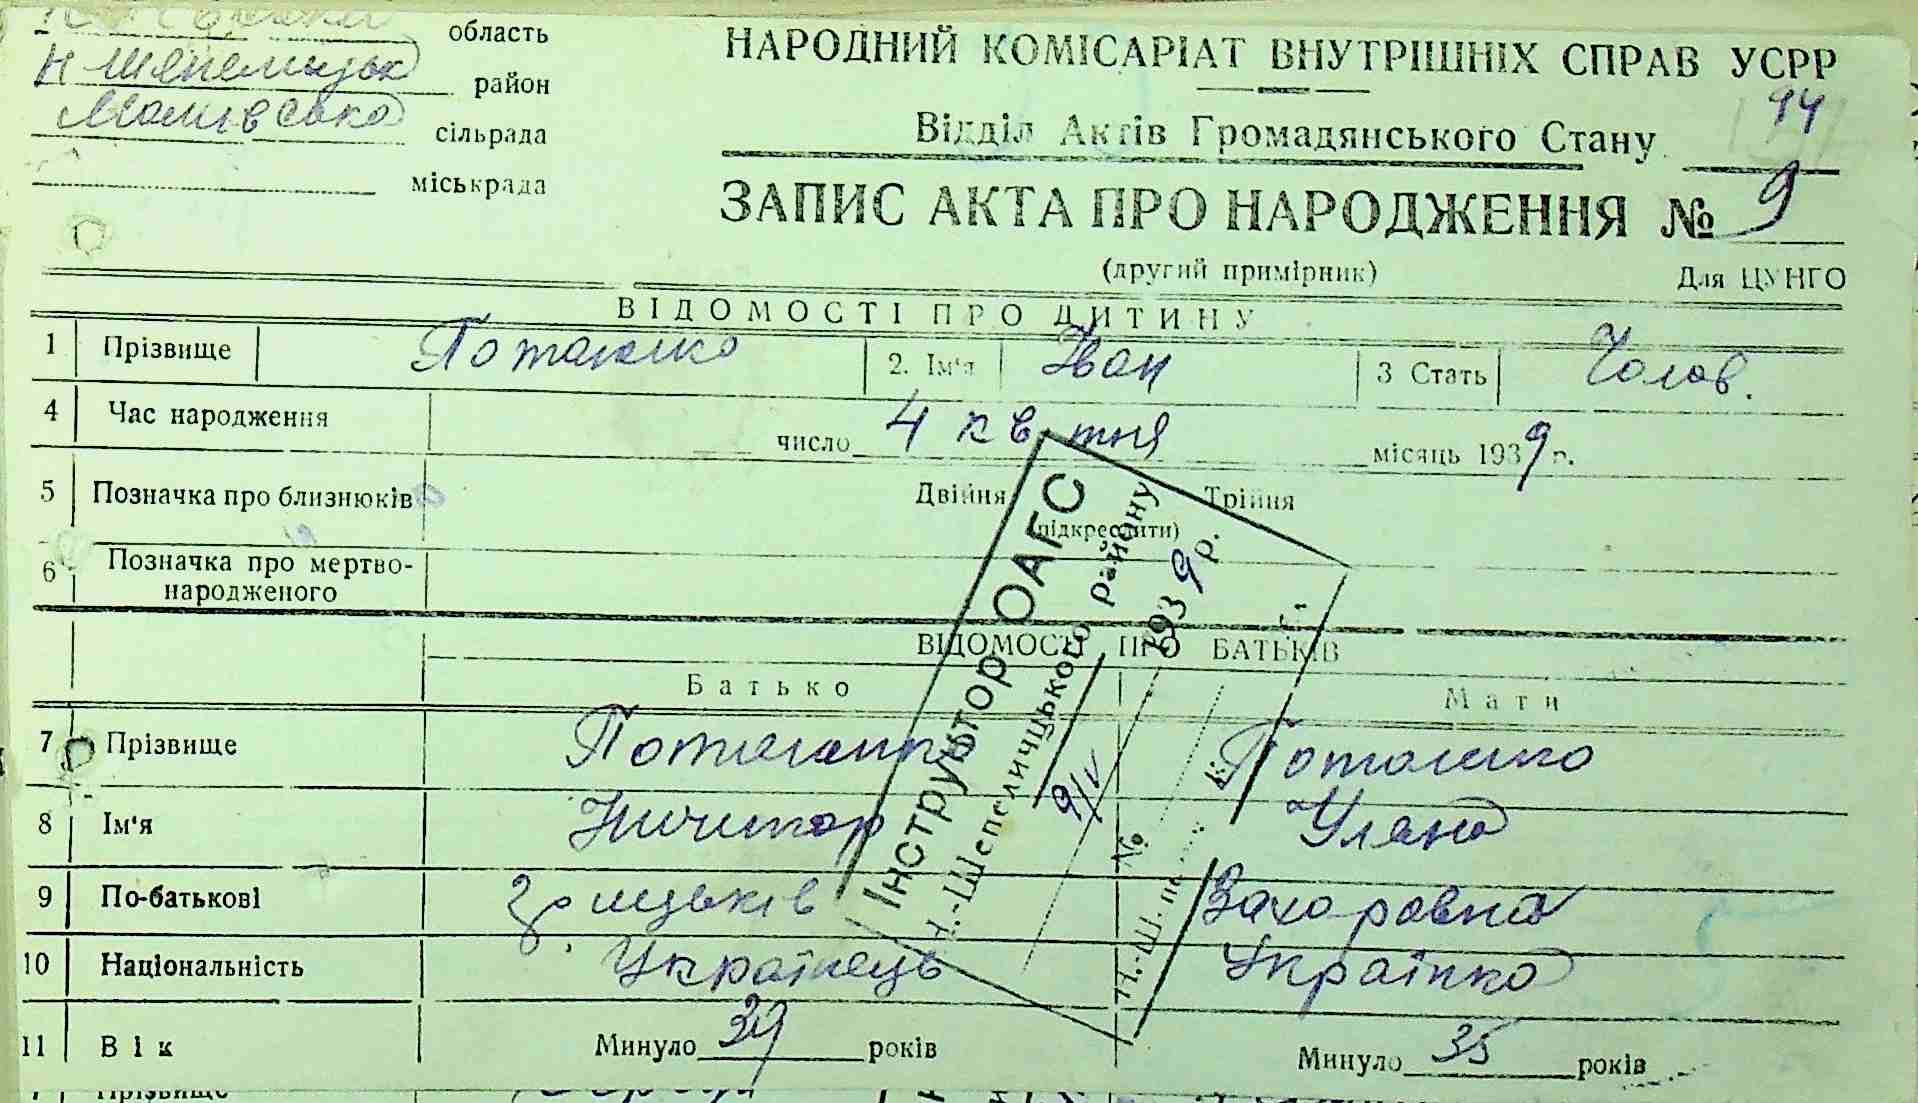 область
Н Шепелицьк район
Машівська сільрада
міськрада
НАРОДНИЙ КОМІСАРІАТ ВНУТРІШНІХ СПРАВ УСРР
94
Відділ Актів Громадянського Стану
ЗАПИС АКТА ПРО НАРОДЖЕННЯ № 9
(другий примірник) Для ЦУНГО
ВІДОМОСТІ ПРО ДИТИНУ
1 Прізвище Поташко 2. Ім'я Іван 3 Стать Чолов.
4 Час народження число 4 квітня місяць 1939 р.
5 Позначка про близнюків Двійня Трійня
(підкреслити)
6 Позначка про мертво-
народженого
ВІДОМОСТІ ПРО БАТЬКІВ
Батько Мати
7 Прізвище Поташко Поташко
8 Ім'я Ничипор Уляна
9 По-батькові Грицьків Захаровна
10 Національність Українець Українка
11 Вік Минуло 39 років Минуло 35 років
Інструктор ОАГС
Н.-Шепелицького району
9/IV 1939 р.
№
Н.-Ш.
Прізвище